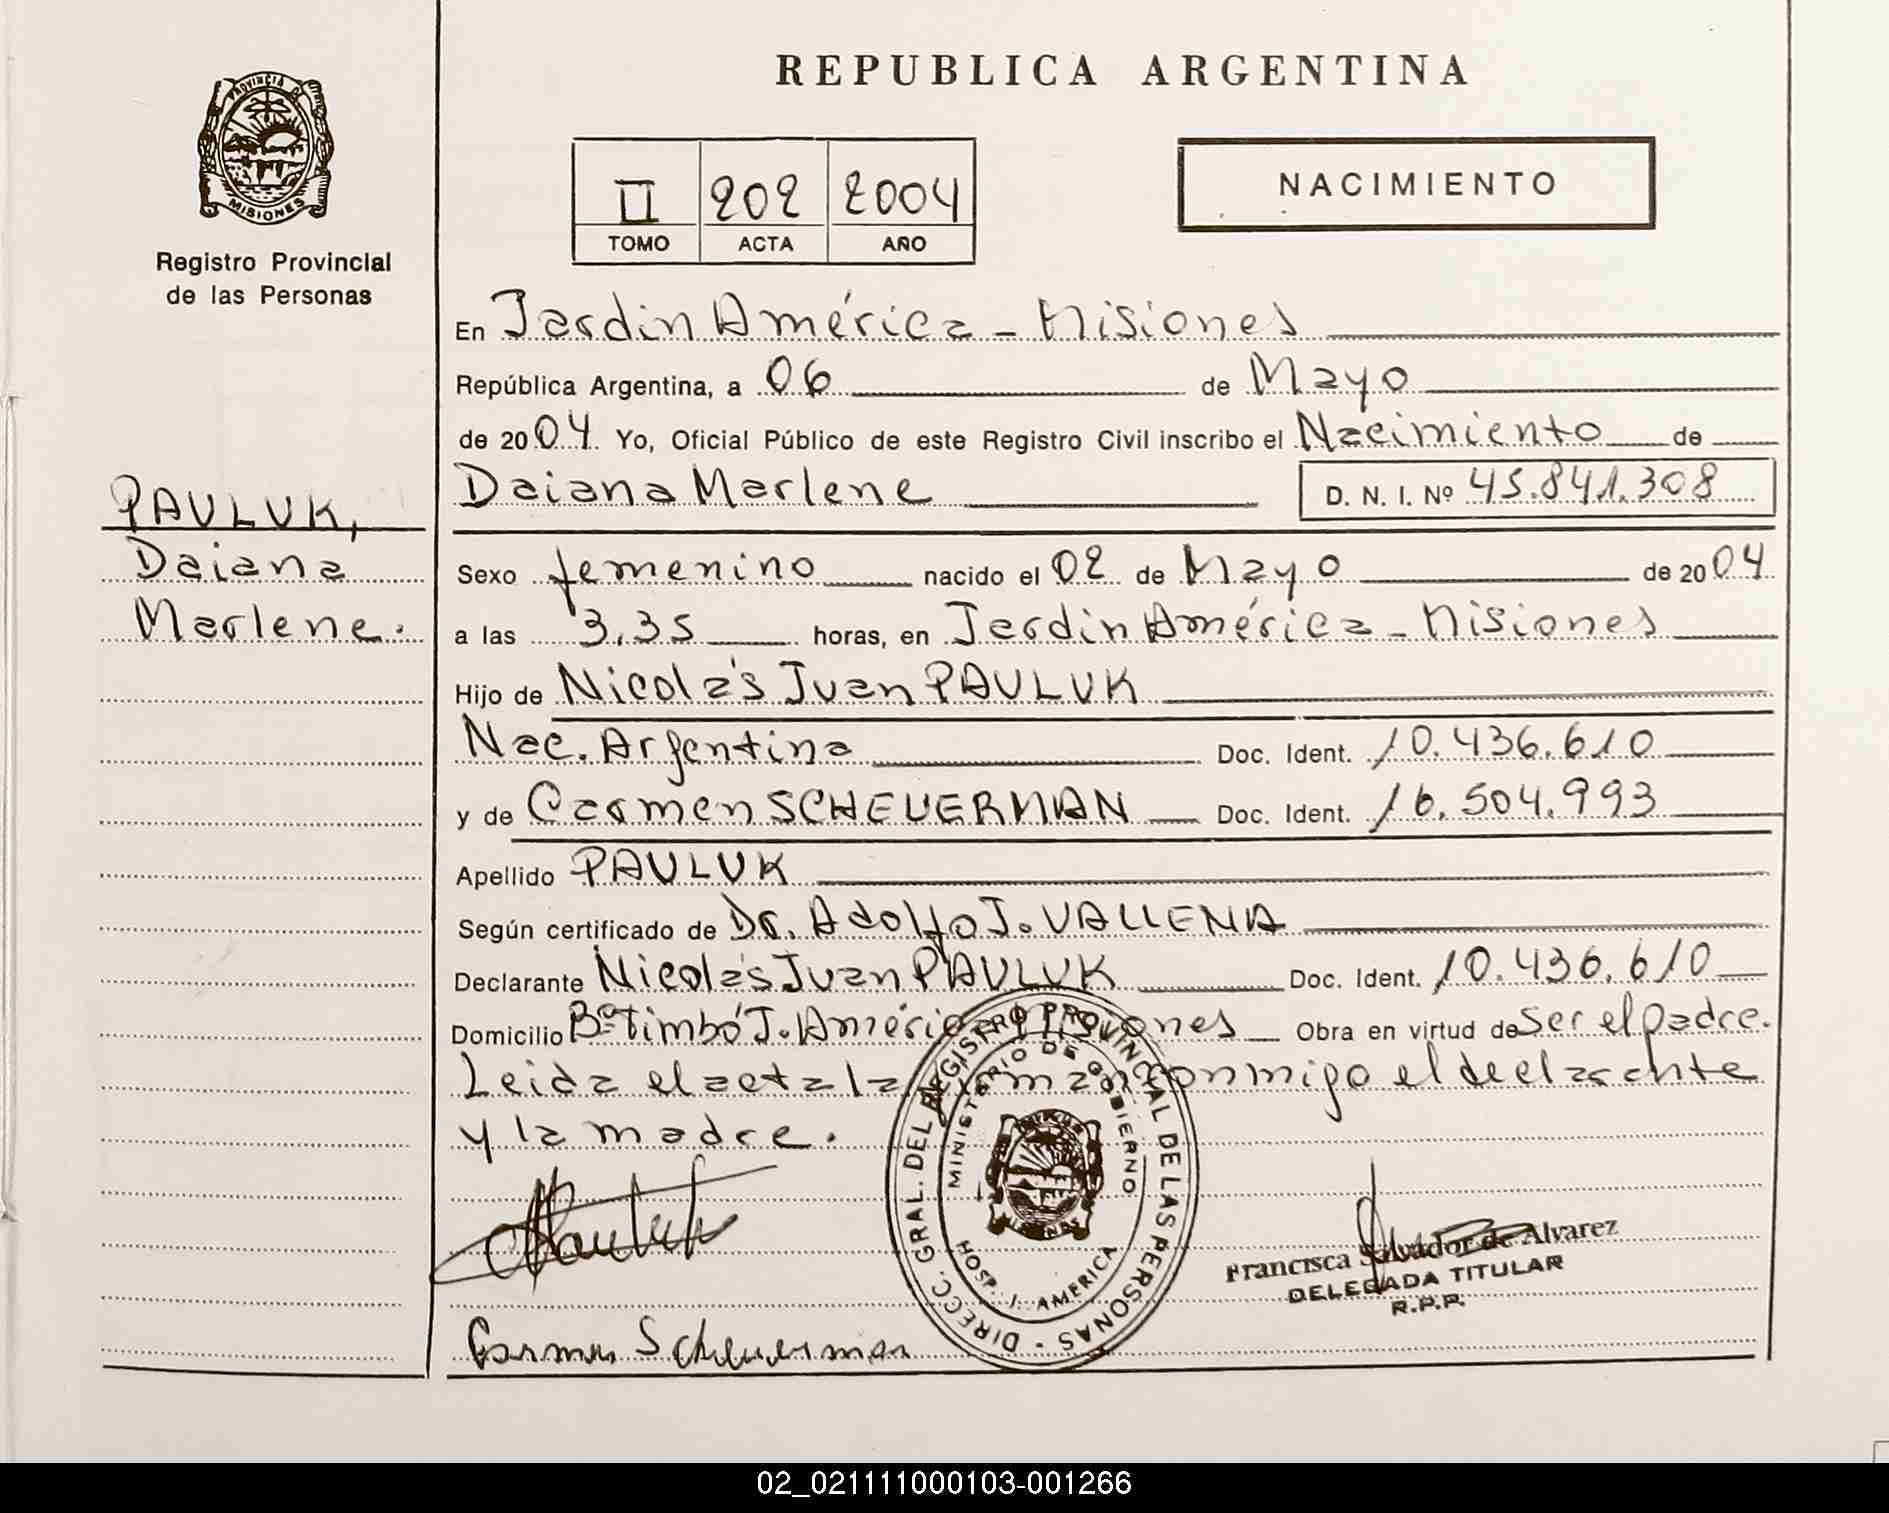 REPUBLICA ARGENTINA
PROVINCIA DE
MISIONES
Registro Provincial
de las Personas
II 202 2004
TOMO ACTA AÑO
NACIMIENTO
En Jardin América - Misiones
República Argentina, a 06 de Mayo
de 2004 Yo, Oficial Público de este Registro Civil inscribo el Nacimiento de
Daiana Marlene D. N. I. Nº 45.841.308
PAULUK,
Daiana
Marlene.
Sexo femenino nacido el 02 de Mayo de 2004
a las 3,35 horas, en Jardin América - Misiones
Hijo de Nicolás Juan PAULUK
Nac. Argentina Doc. Ident. 10.436.610
y de Carmen SCHEUERMAN Doc. Ident. 16.504.993
Apellido PAULUK
Según certificado de Dr. Adolfo J. VALLENA
Declarante Nicolás Juan PAULUK Doc. Ident. 10.436.610
Domicilio Bº Timbó J. América Misiones Obra en virtud de Ser el padre.
Leida el acta la firman conmigo el declarante
y la madre.
DIRECC. GRAL. DEL REGISTRO PROVINCIAL DE LAS PERSONAS
MINISTERIO DE GOBIERNO
MISIONES
HOSP. J. AMERICA
Pauluk
Francisca Salvador de Alvarez
DELEGADA TITULAR
R.P.P.
Carmen Scheuerman
02_021111000103-001266